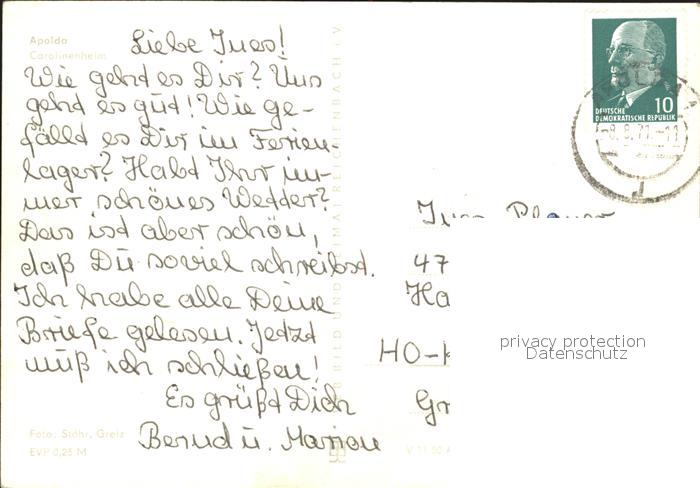 Apolda
Carolinenheim
Liebe Ines!
Wie geht es Dir? Uns
geht es gut! Wie ge-
fällt es Dir im Ferien-
lager? Habt Ihr im-
mer schönes Wetter?
Das ist aber schön,
daß Du soviel schreibst.
Ich habe alle Deine
Briefe gelesen. Jetzt
muß ich schließen!
Es grüßt Dich
Bernd u. Marion
Foto: Stöhr, Greiz
EVP 0,25 M
BILD UND HEIMAT REICHENBACH i. V
V 11 50 A
10
DEUTSCHE
DEMOKRATISCHE REPUBLIK
-8.8.71.-11
Ines
47
Ha
HO-
Gr
privacy protection
Datenschutz